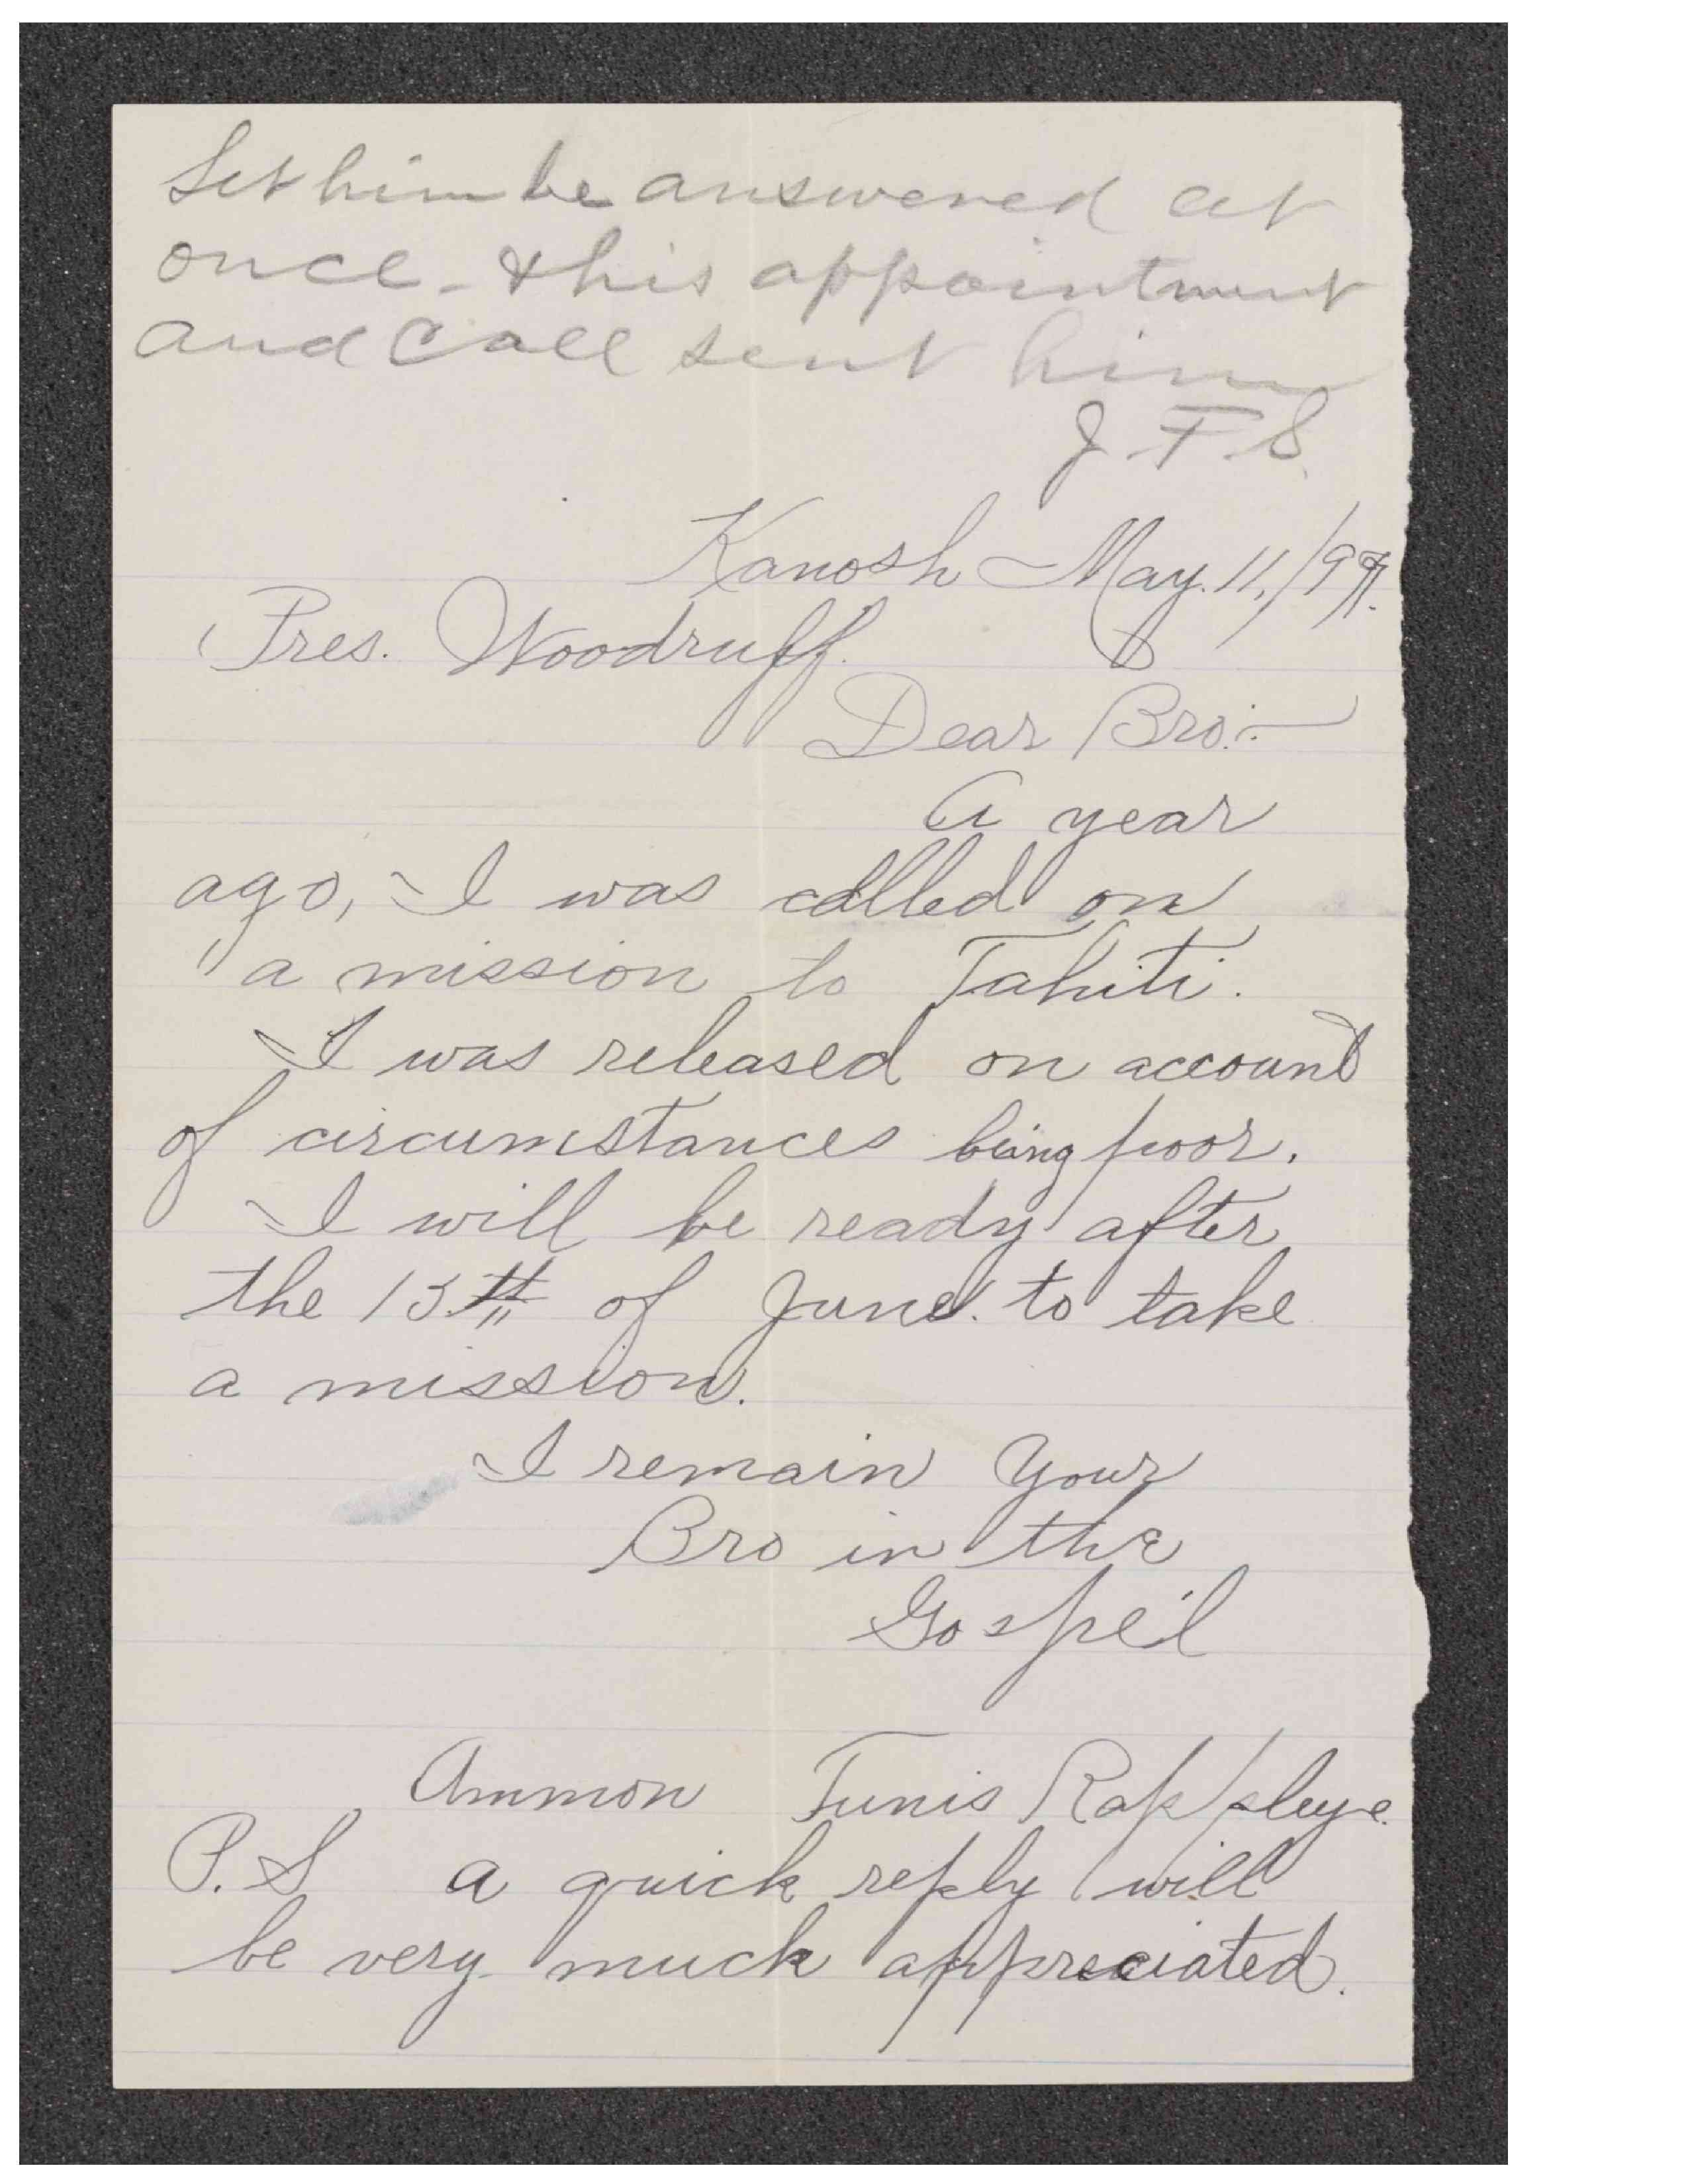 Let him be answered at
once - & his appointment
and Call sent him
J. F. S.
Kanosh May. 11, /97.
Pres. Woodruff.
Dear Bro:-
A year
ago, I was called on
a mission to Tahiti.
I was released on account
of circumstances being poor.
I will be ready after
the 13th of June. to take
a mission.
I remain Your
Bro in the
Gospel
Ammon Tunis Rappleye.
P.S a quick reply will
be very much appreciated.